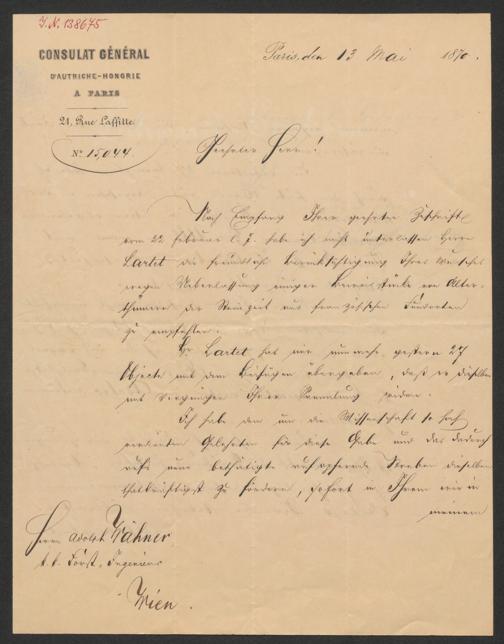 J.N. 138675
CONSULAT GÉNÉRAL
D'AUTRICHE-HONGRIE
A PARIS
21, Rue Laffitte.
No. 15,044
Paris, den 13 Mai 1870.
Geehrter Herr!
Nach Empfang Ihrer geehrten Zuschrift
vom 22 Februar l. J. habe ich nicht unterlassen Herrn
Lartet die freundliche Berücksichtigung Ihres Wunsches
wegen Ueberlassung einiger von Alter-
thümern der Steinzeit aus französischen Fundorten
zu empfehlen.
Hr. Lartet hat mir nunmehr gestern 27
Objecte mit dem Beifügen übergeben, daß er dieselben
mit Vergnügen Ihrer Sammlung widme.
Ich habe dem um die Wissenschaft so hoch
verdienten Gelehrten für diese Gabe und das dadurch
aufs neue bethätigte aufopfernde Streben dieselbe
thatkräftigst zu fördern, sofort in Ihrem wie in
meinem
Herrn Adolf Wähner
k. k. Forst-Ingenieur
Wien.